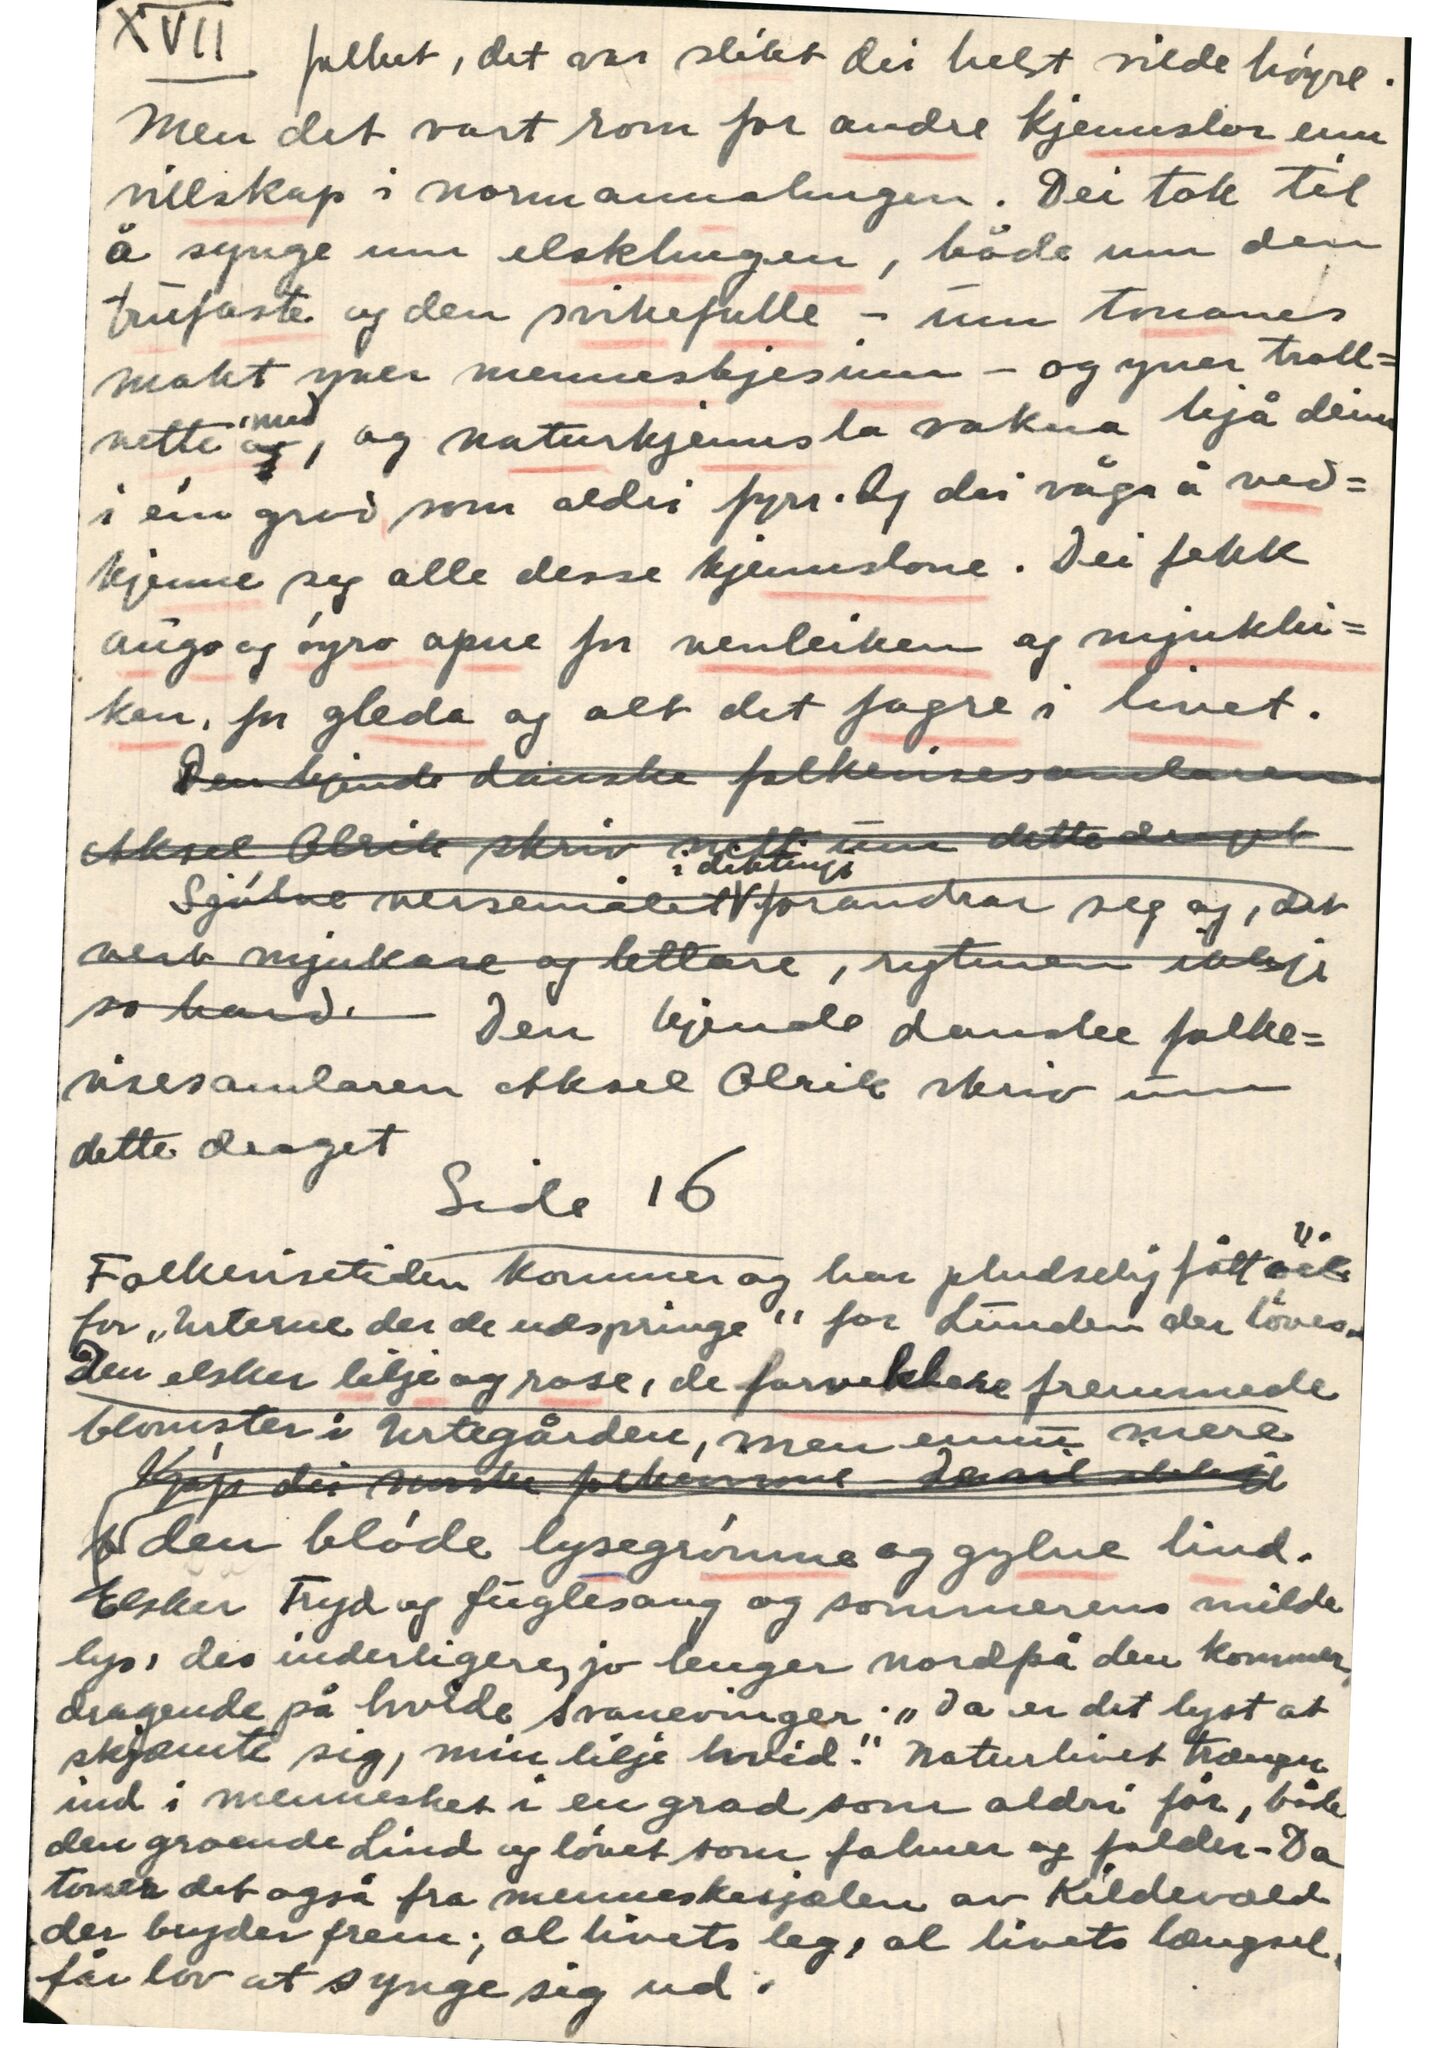 XVII folket, det var slikt dei helst vilde höyre.
Men det vart rom for andre kjennslor enn
villskap i normannahugen. Dei tok til
å synge um elskhugen, både um den
trufaste og den svikefulle – um tonanes
makt yver menneskjesinn – og yver troll=
vette med, og naturkjennsla vakna hjå deim
i ein grad som aldri fyrr. Og dei våga å ved=
kjenne seg alle desse kjennslone. Dei fekk
augo og öyro opne for venleiken og mjuklei=
ken, for gleda og alt det fagre i livet.
Den kjende danske folkevisesamlaren
Aksel Olrik skriv um dette draget
i diktingi
Sjölve versemålet forandrar seg og, det
vert mjukare og lettare, rytmen ikkje
so hard. Den kjende danske folke=
visesamlaren Aksel Olrik skriv um
dette draget
Side 16
Folkevisetiden kommer og har pludselig fått
for „Urterne der de udspringe" for Lunden der löves.
Den elsker lilje og rose, de fremmede
blomster i Urtegården, men ennu mere
den blöde lysegrönne og gylne lind.
Elsker Fryd og fuglesang og sommerens milde
lys, des inderligere, jo lenger nordpå den kommer,
dragende på hvide svanevinger. „Da er det lyst at
skjæmte sig, min lilje hvid." Naturlivet trænger
ind i mennesket i en grad som aldri för, både
den groende Lind og lövet som falmer og falder – Da
toner det også fra menneskesjælen av Kildevæld
der bryder frem; al livets leg, al livets længsel,
får lov at synge sig ud.